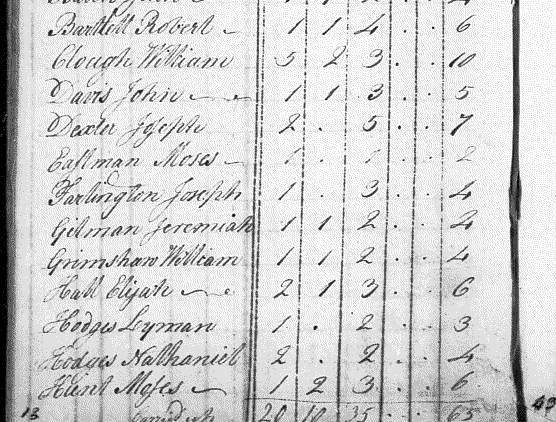 Bartlett Robert 1 1 4 . . 6
Clough William 5 2 3 . . 10
Davis John 1 1 3 . . 5
Dexter Joseph 2 . 5 . . 7
Eastman Moses 1 . 1 . . 2
Farlington Joseph 1 . 3 . . 4
Gilman Jeremiah 1 1 2 . . 4
Grimshaw William 1 1 2 . . 4
Hall Elijah 2 1 3 . . 6
Hodges Lyman 1 . 2 . . 3
Hodges Nathaniel 2 . 2 . . 4
Hunt Moses 1 2 3 . . 6
13 20 10 35 . . 65